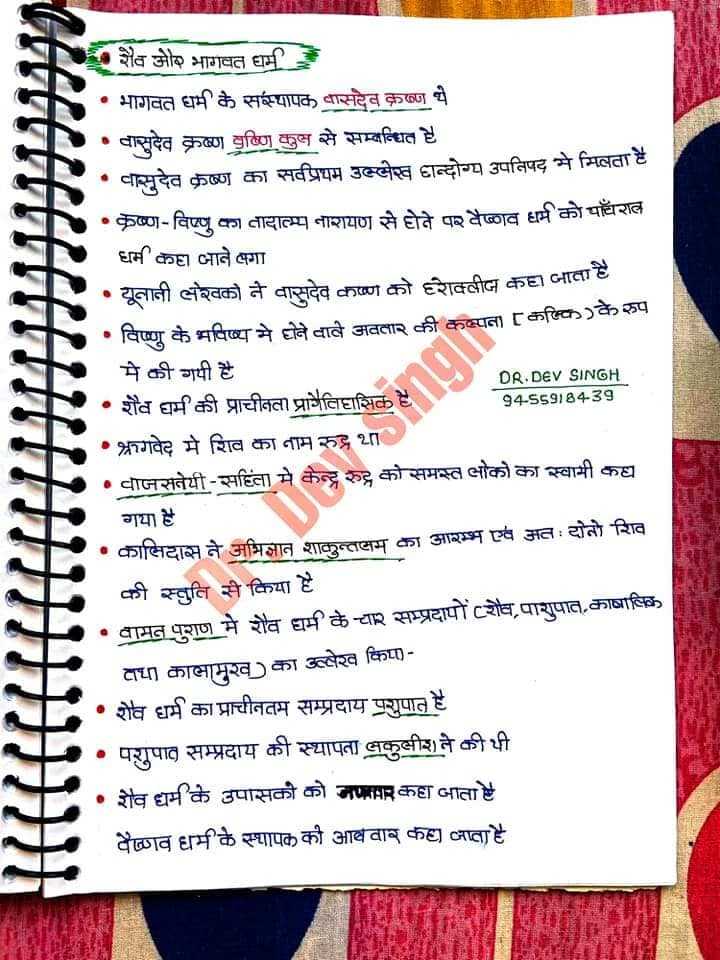 • शैव और भागवत धर्म
• भागवत धर्म के संस्थापक वासुदेव कृष्ण थे
• वासुदेव कृष्ण वृष्णि कुल से सम्बन्धित है
• वासुदेव कृष्ण का सर्वप्रथम उल्लेख छान्दोग्य उपनिषद मे मिलता है
• कृष्ण-विष्णु का तादात्म्य नारायण से होने पर वैष्णव धर्म को पाँचरात्र
धर्म कहा जाने लगा
• यूनानी लेखको ने वासुदेव कृष्ण को हेराक्लीज कहा जाता है
• विष्णु के भविष्य मे होने वाले अवतार की कल्पना (कल्कि) के रूप
मे की गयी है
DR. DEV SINGH
• शैव धर्म की प्राचीनता प्रागैतिहासिक है
9455918439
• ऋगवेद मे शिव का नाम रुद्र था
• वाजसनेयी-सहिंता मे केन्द्र रुद्र को समस्त लोको का स्वामी कहा
गया है
• कालिदास ने अभिज्ञान शाकुन्तलम का आरम्भ एवं अतः दोनो शिव
की स्तुति से किया है
• वामन पुराण मे शैव धर्म के चार सम्प्रदायों (शैव, पाशुपात, कापालिक
तथा कालामुख) का उल्लेख किया-
• शैव धर्म का प्राचीनतम सम्प्रदाय पशुपात है
• पशुपात सम्प्रदाय की स्थापना लकुलीश ने की थी
• शैव धर्म के उपासको को कहा जाता है
वैष्णव धर्म के स्थापक को आलवार कहा जाता है
Dr. Dev Singh